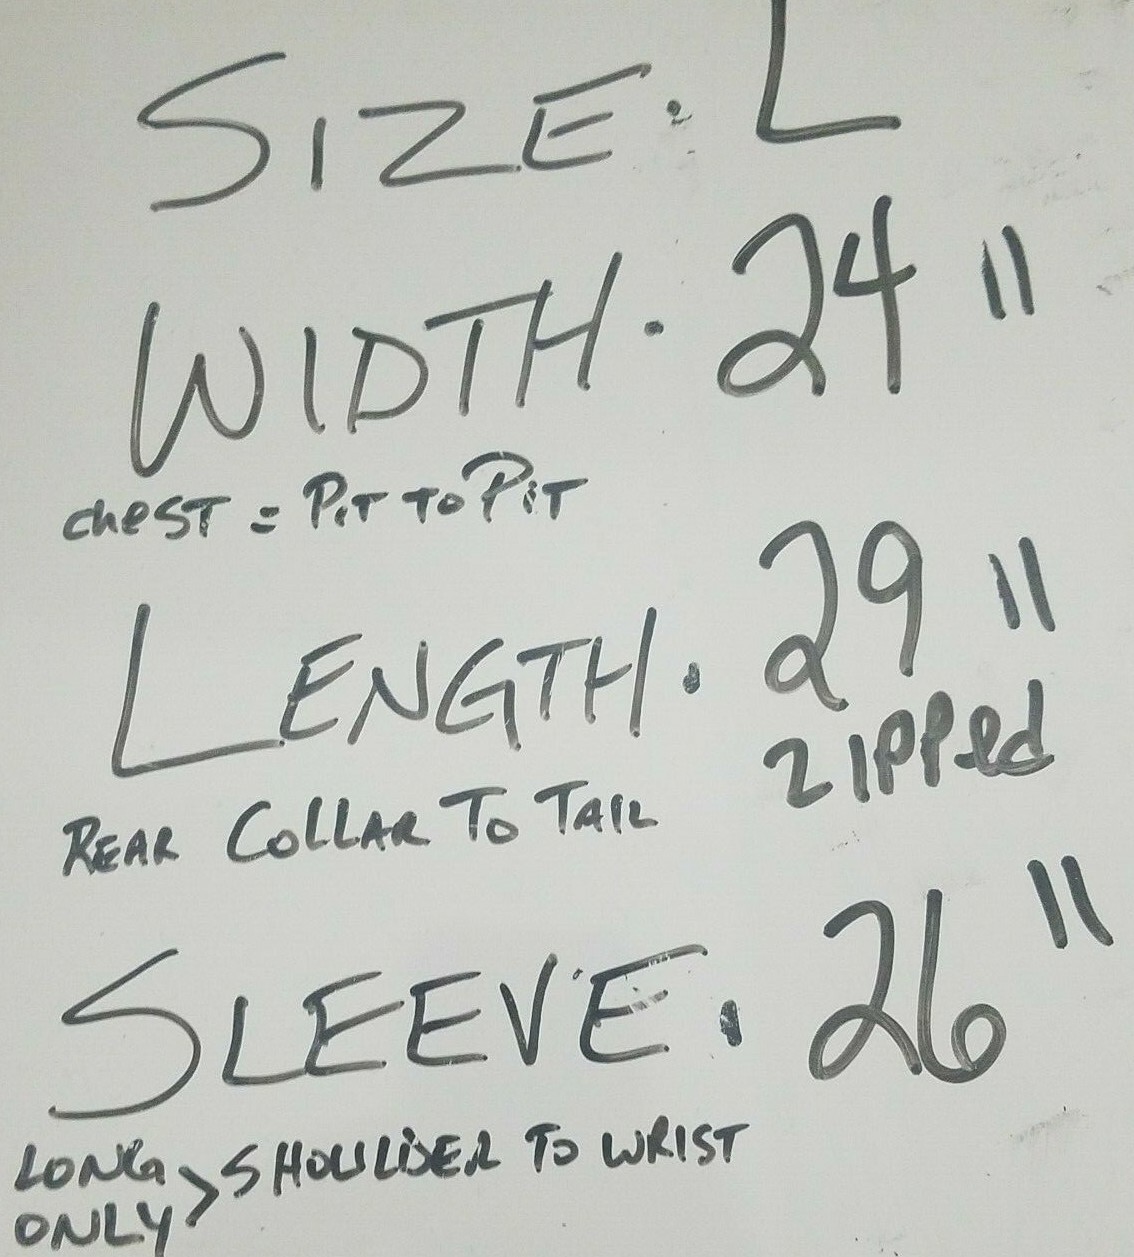 SIZE: L
WIDTH. 24"
chesT = PiT To PiT
LENGTH. 29"
zipped
REAR COLLAR TO TAIL
SLEEVE. 26"
LONG
ONLY > SHOULDER TO WRIST